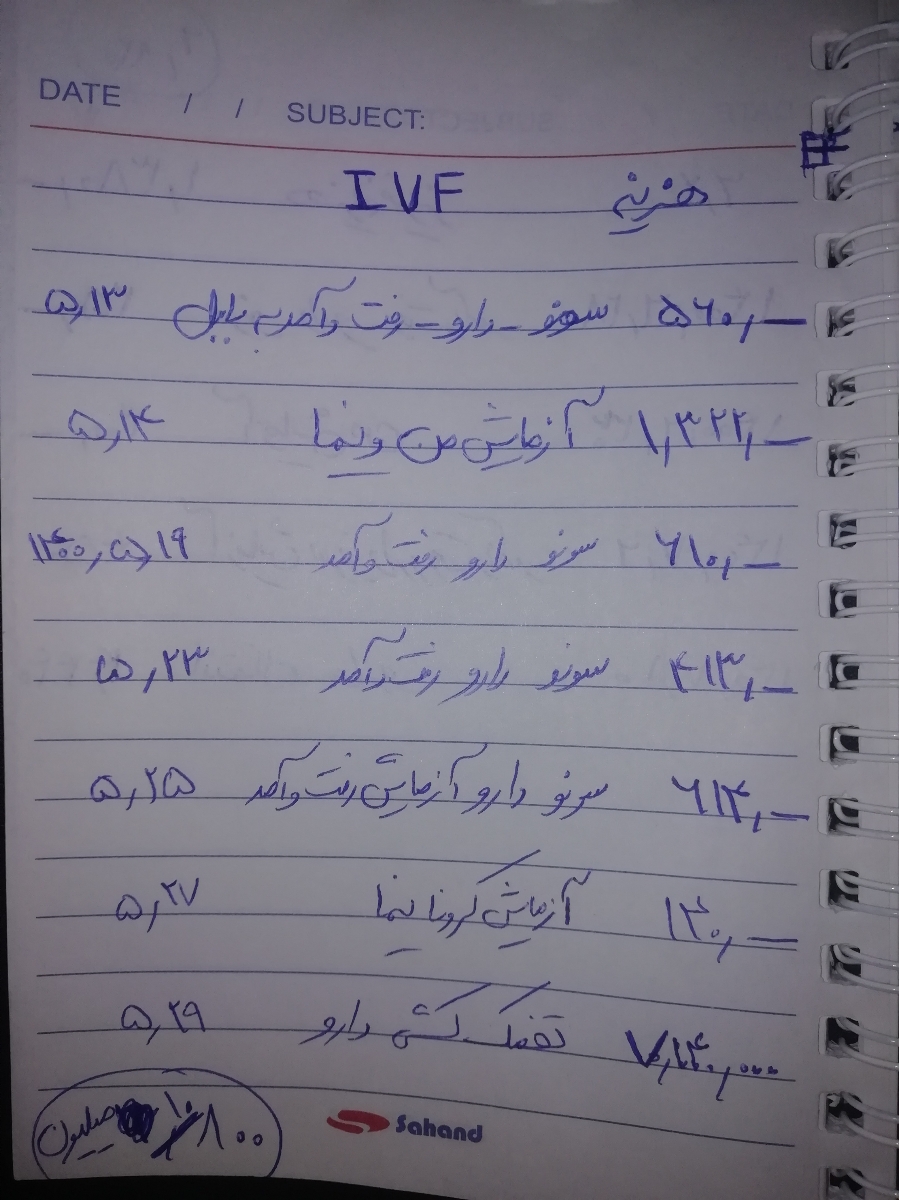 DATE / / SUBJECT:
هزینه IVF
۵۶۰,— سونو - دارو - رفت و آمد به بابل ۵,۱۳
۱,۳۲۲,— آزمایش من و نیما ۵,۱۴
۶۱۰,— سونو دارو رفت و آمد ۱۴۰۰,۵,۱۹
۴۱۳,— سونو دارو رفت و آمد ۵,۲۳
۶۱۴,— سونو دارو آزمایش رفت و آمد ۵,۲۵
۱۴۰,— آزمایش کرونا نیما ۵,۲۷
۷,۱۴۰,۰۰۰ تخمک کشی دارو ۵,۲۹
۱۰/۸۰۰ میلیون
Sahand